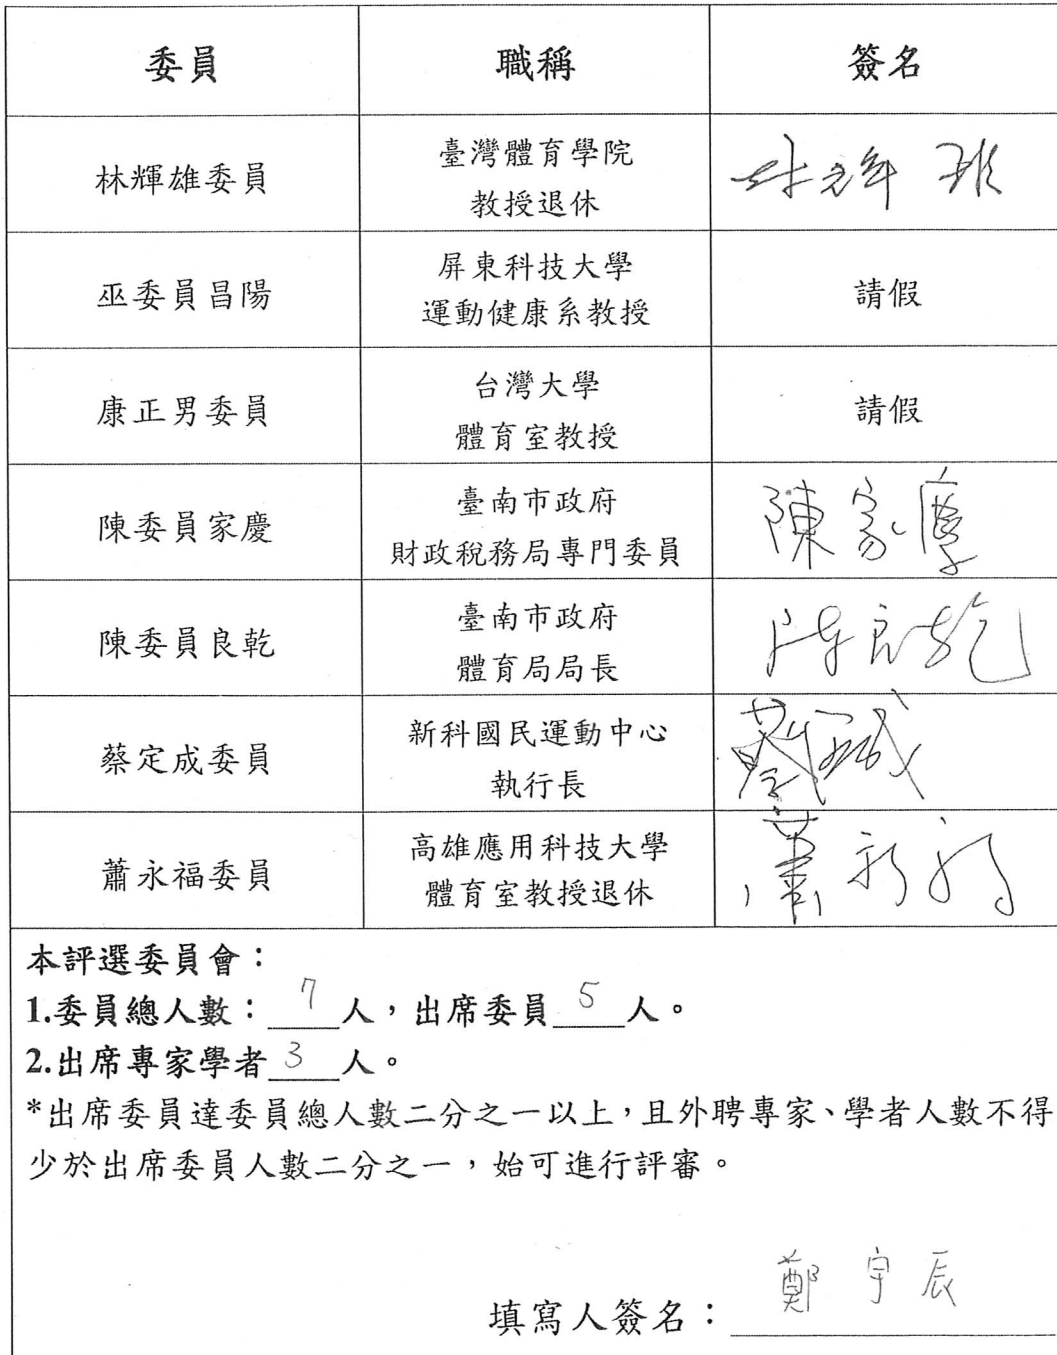 委員 職稱 簽名
林輝雄委員 臺灣體育學院 林輝雄
教授退休
巫委員昌陽 屏東科技大學 請假
運動健康系教授
康正男委員 台灣大學 請假
體育室教授
陳委員家慶 臺南市政府 陳家慶
財政稅務局專門委員
陳委員良乾 臺南市政府 陳良乾
體育局局長
蔡定成委員 新科國民運動中心
執行長
蕭永福委員 高雄應用科技大學 蕭永福
體育室教授退休
本評選委員會：
1.委員總人數：7人，出席委員5人。
2.出席專家學者3人。
*出席委員達委員總人數二分之一以上，且外聘專家、學者人數不得
少於出席委員人數二分之一，始可進行評審。
填寫人簽名：鄭宇辰